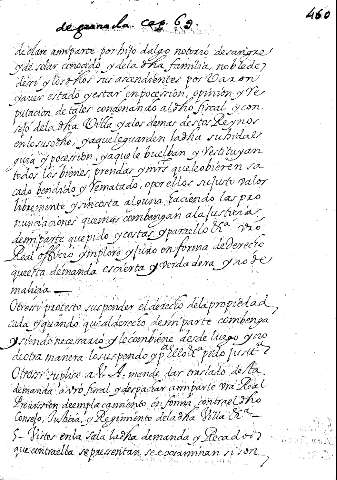 de granada Cap. 69.
460
declare amiparte por hijo dalgo notorio de sangre
y de solar conocido, y de la dha familia, noble de
de si y los dhos sus ascendientes por Varon
y aver estado y estar en posesion, opinion, y re
putacion de tales condenando al dho fiscal, y con
sejo de la dha Villa y a los demas destos Reynos
en los susodho, y a que le guarden la dha su hidal
guia y posesion, y a que le buelban y restituyan
todos los bienes, prendas y mrs que le obieren sa
cado bendido y rematado, o por ellos su justo valor
libremente y sin costa alguna, haciendo las pro
nunciaciones que mas combengan a la justicia
de mi parte que pido y costas y para ello &a vro
Real officio ymploro y juro en forma de derecho
questa demanda es cierta y verdadera, y no de
malicia —
Otrosi protesto suspender el derecho de la propiedad
cada y quando que al derecho de mi parte combenga
y siendo necesario y le combiene desde luego y no
de otra manera lo suspendo y pa ello &a pido just
Otrosi suplico a V. A. mande dar traslado desta
demanda a vro fiscal, y despachar a mi parte vra Real
Provission de emplacamiento en forma, contra el dho
Consejo, Justicia, y Regimiento de la dha Villa &a —
Vistos en la sala la dha demanda y Recados
que con ella se presentan, se